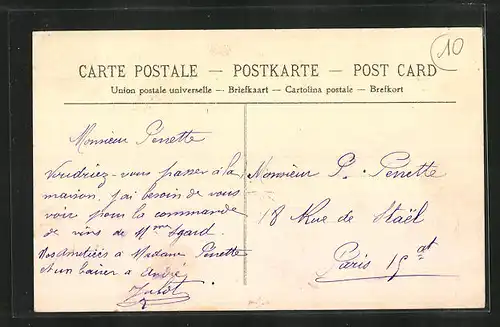 10
CARTE POSTALE — POSTKARTE — POST CARD
Union postale universelle — Briefkaart — Cartolina postale — Brefkort
Monsieur Perrette
Voudriez-vous passer à la
maison, j'ai besoin de vous
voir pour la commande
de vins de Mme
Nos amitiés à Madame Perrette
et un baiser à André
Monsieur P. Perrette
18 Rue de Staël
Paris 15at